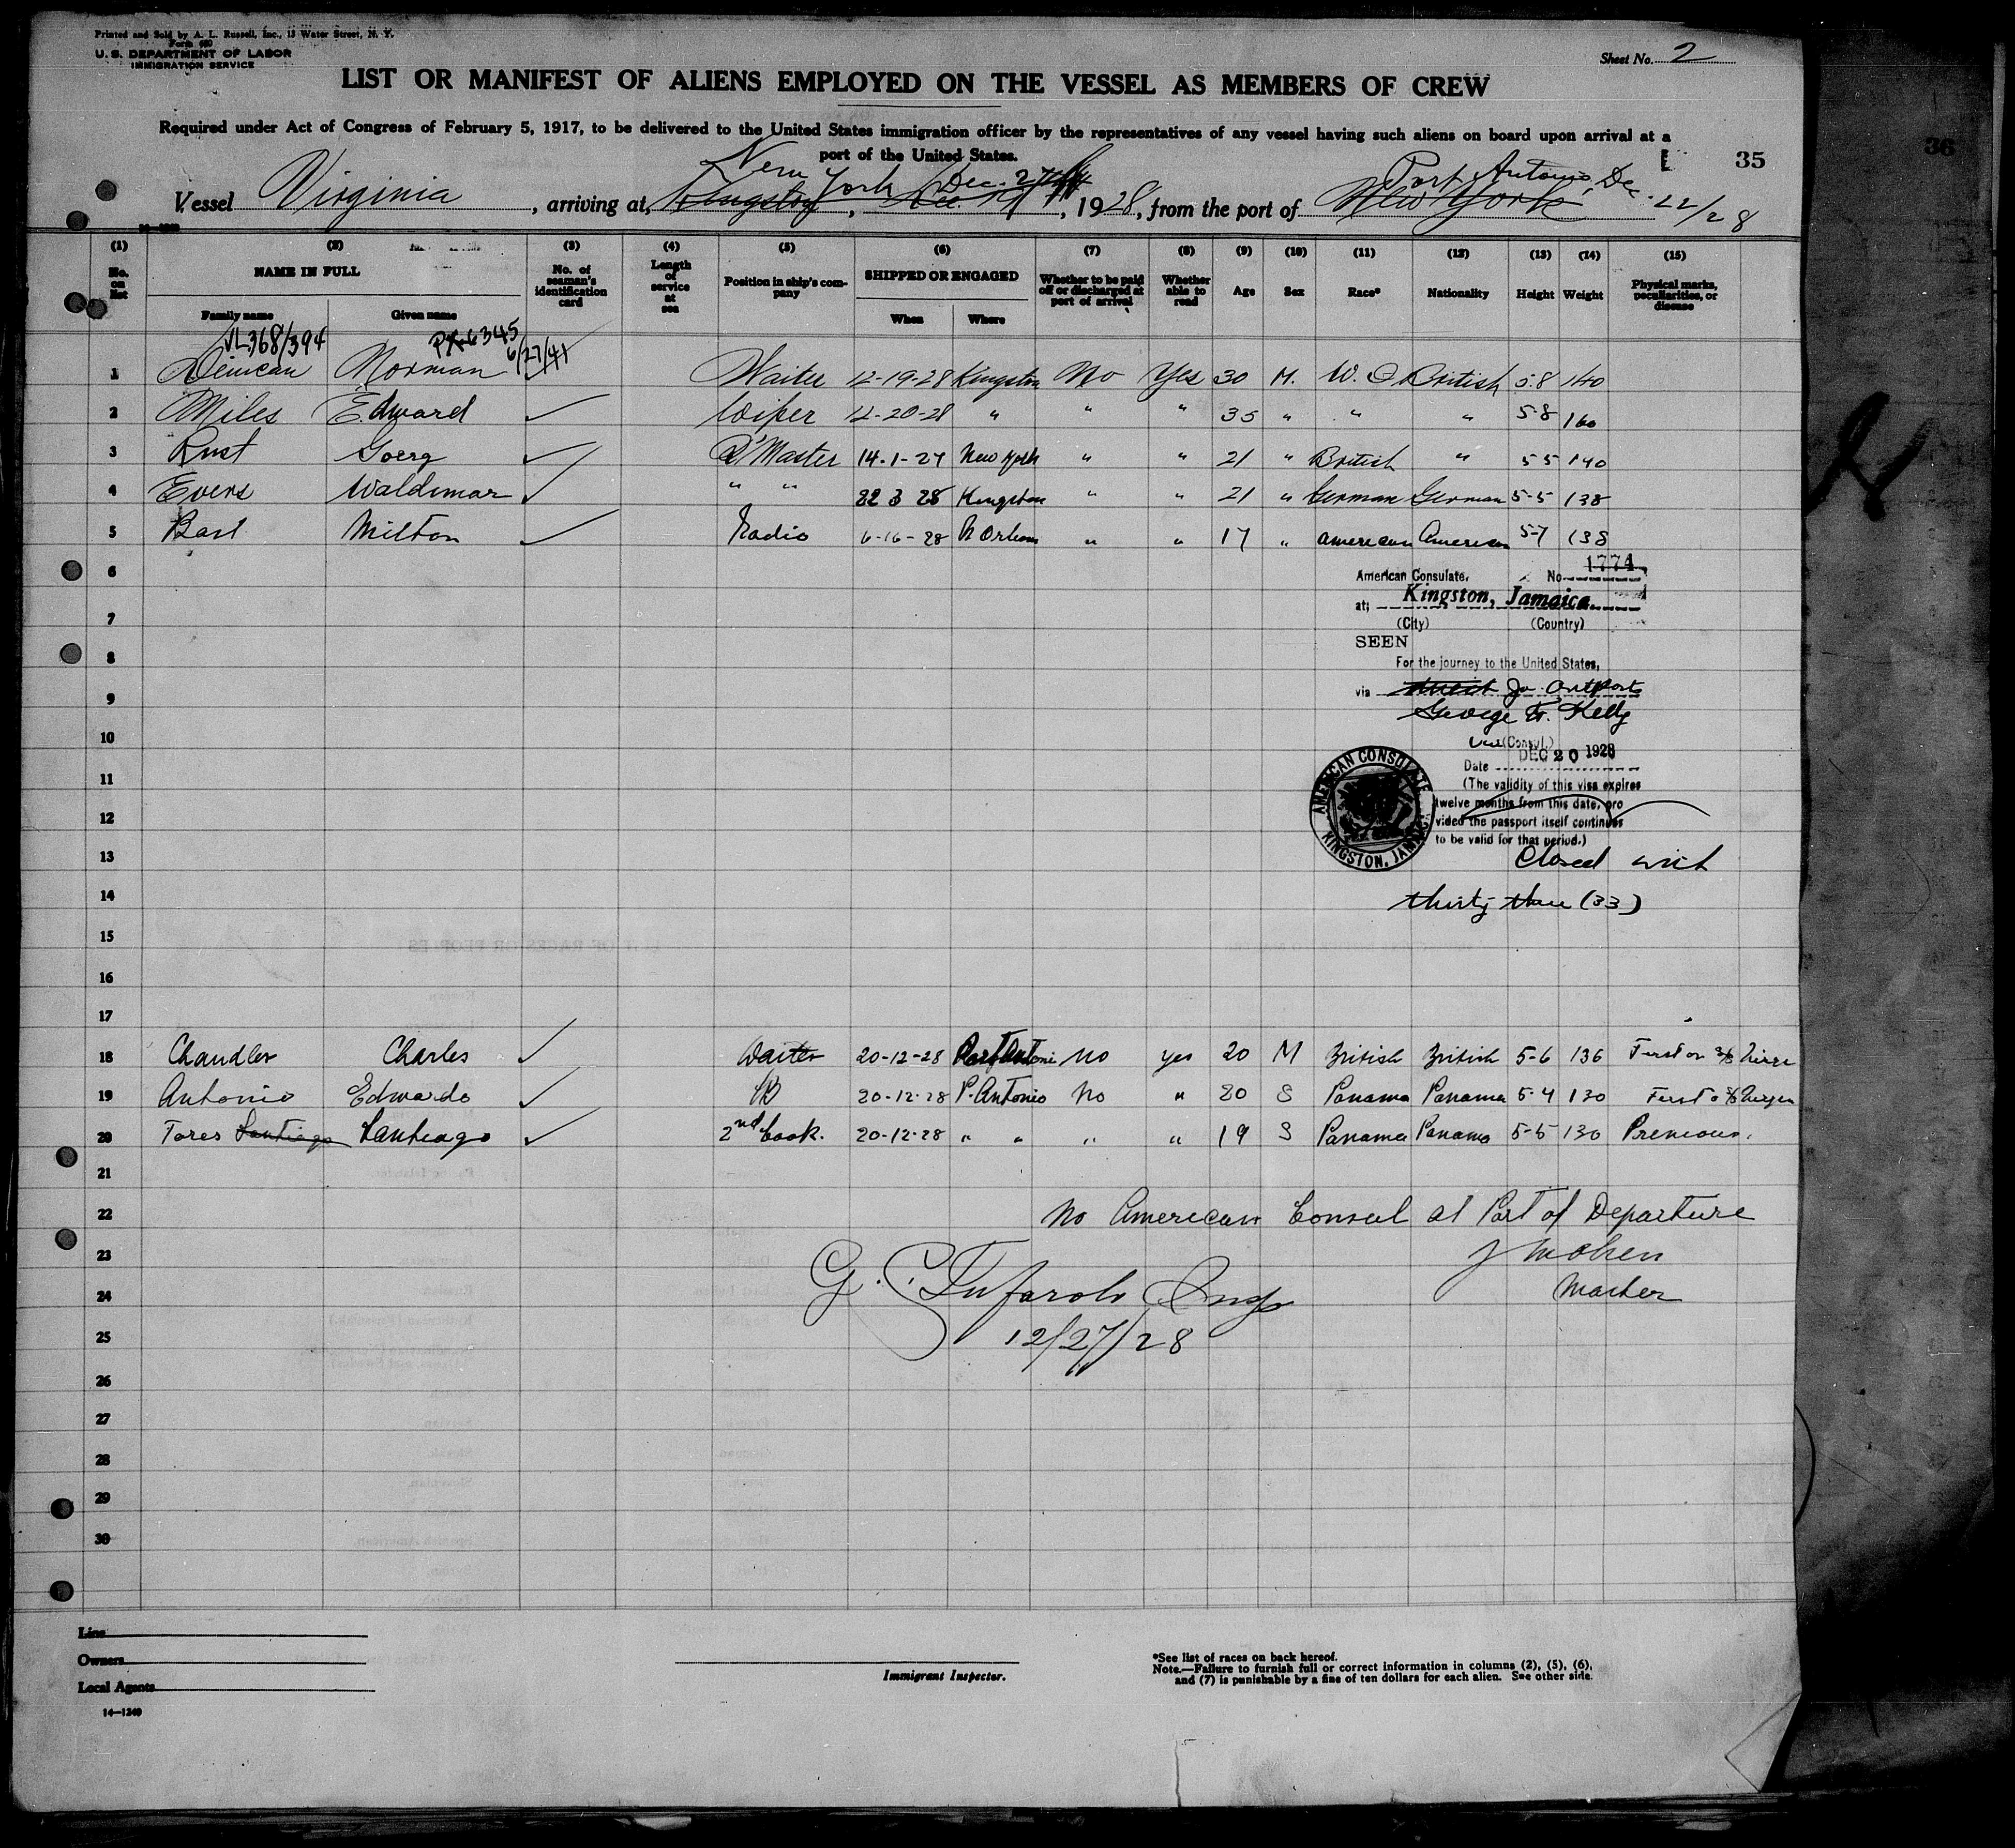 Printed and Sold by A. L. Russell, Inc., 13 Water Street, N. Y.
Form 680
U. S. DEPARTMENT OF LABOR
IMMIGRATION SERVICE
Sheet No. 2
LIST OR MANIFEST OF ALIENS EMPLOYED ON THE VESSEL AS MEMBERS OF CREW
Required under Act of Congress of February 5, 1917, to be delivered to the United States immigration officer by the representatives of any vessel having such aliens on board upon arrival at a
port of the United States.
35
36
New York Dec. 27 Port Antonio, Dec. 22/28
Vessel Virginia, arriving at, Kingston, Dec. 1928, from the port of New York
(1) (2) (3) (4) (5) (6) (7) (8) (9) (10) (11) (12) (13) (14) (15)
No. on list NAME IN FULL Family name Given name No. of seaman's identification card Length of service at sea Position in ship's company SHIPPED OR ENGAGED When Where Whether to be paid off or discharged at port of arrival Whether able to read Age Sex Race* Nationality Height Weight Physical marks, peculiarities, or disease
VL368/394 6345 6/27/41
1 Duncan Norman Waiter 12-19-28 Kingston No Yes 30 M. W. British 5.8 140
2 Miles Edward Wiper 12-20-28 " " " 35 " " " 5-8 160
3 Rust Goerg Q'Master 14-1-27 New York " " 21 " British " 5 5 140
4 Evers Waldimar " " 22 3 28 Kingston " " 21 " German German 5-5 138
5 Milton Radio 6-16-28 N Orleans " " 17 " American American 5-7 138
6
7
8
9
10
11
12
13
14
15
16
17
American Consulate, No 1774
at; Kingston, Jamaica
(City) (Country)
SEEN
For the journey to the United States,
via direct Ja. Outports
George F. Kelly
Vice (Consul.)
Date DEC 20 1928
(The validity of this visa expires
twelve months from this date, pro
vided the passport itself continues
to be valid for that period.)
AMERICAN CONSULATE KINGSTON, JAMAICA
Closed with
thirty three (33)
18 Chandler Charles Waiter 20-12-28 Port Antonio No yes 20 M British British 5-6 136 First on
19 Antonio Edwardo 20-12-28 P. Antonio No " 20 S Panama Panama 5-4 130 First
20 Tores Santiago Santiago 2nd Cook. 20-12-28 " " " " 19 S Panama Panama 5-5 130 Previous.
21
22 No American Consul at Port of Departure
23
24 Master
G. Insp
25 12/27/28
26
27
28
29
30
Line
Owners
Local Agents
14—1240
Immigrant Inspector.
*See list of races on back hereof.
Note.—Failure to furnish full or correct information in columns (2), (5), (6),
and (7) is punishable by a fine of ten dollars for each alien. See other side.